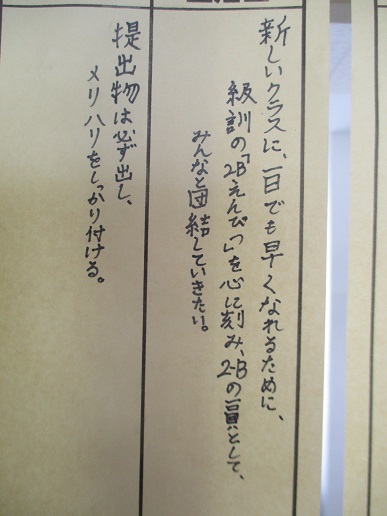 新しいクラスに、一日でも早くなれるために、
級訓の「2Bえんぴつ」を心に刻み、2-Bの一員として、
みんなと団結していきたい。
提出物は必ず出し、
メリハリをしっかり付ける。